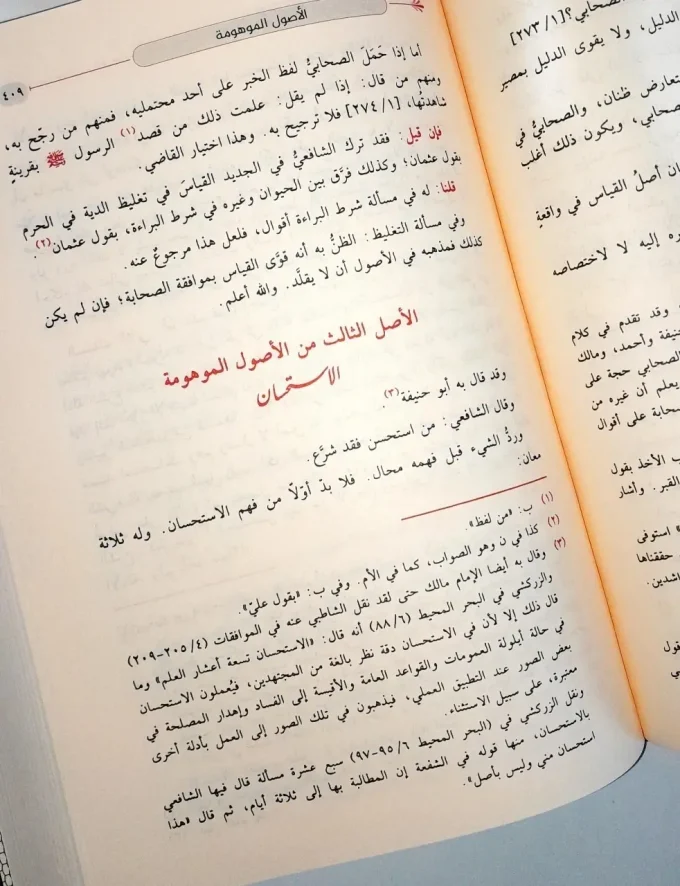 الأصول الموهومة
٤٠٩
أما إذا حَمَلَ الصحابيُّ لفظ الخبر على أحد محتمليه، فمنهم من رجّح به،
ومنهم من قال: إذا لم يقل: علمت ذلك من قصد(١) الرسول ﷺ بقرينةٍ
شاهدتُها، [٢٧٤/١] فلا ترجيح به. وهذا اختيار القاضي.
فإن قيل: فقد ترك الشافعيُّ في الجديد القياسَ في تغليظ الدية في الحرم
بقول عثمان؛ وكذلك فرَّق بين الحيوان وغيره في شرط البراءة، بقول عثمان(٢).
قلنا: له في مسألة شرط البراءة أقوال، فلعل هذا مرجوعٌ عنه.
وفي مسألة التغليظ: الظنُّ به أنه قوَّى القياس بموافقة الصحابة؛ فإن لم يكن
كذلك فمذهبه في الأصول أن لا يقلَّد. والله أعلم.
الأصل الثالث من الأصول الموهومة
الاستحسان
وقد قال به أبو حنيفة(٣).
وقال الشافعي: من استحسن فقد شرَّع.
وردُّ الشيء قبل فهمه محال. فلا بدّ أوّلاً من فهم الاستحسان. وله ثلاثة
معان:
(١) ب: «من لفظ».
(٢) كذا في ن وهو الصواب، كما في الأم. وفي ب: «بقول عليّ».
(٣) وقال به أيضا الإمام مالك حتى لقد نقل الشاطبي عنه في الموافقات (٢٠٥/٤-٢٠٩)
والزركشي في البحر المحيط (٨٨/٦) أنه قال: «الاستحسان تسعة أعشار العلم» وما
قال ذلك إلا لأن في الاستحسان دقة نظر بالغة من المجتهدين، فيُعملون الاستحسان
في حالة أيلولة العمومات والقواعد العامة والأقيسة إلى الفساد وإهدار المصلحة في
بعض الصور عند التطبيق العملي، فيذهبون في تلك الصور إلى العمل بأدلة أخرى
معتبرة، على سبيل الاستثناء.
ونقل الزركشي في (البحر المحيط ٩٥/٦-٩٧) سبع عشرة مسألة قال فيها الشافعي
بالاستحسان، منها قوله في الشفعة إن المطالبة بها إلى ثلاثة أيام، ثم قال «هذا
استحسان مني وليس بأصل».
صحابي؟[٢٧٣/١]
الدليل، ولا يقوى الدليل بمصير
تعارض ظنان، والصحابيُّ في
صحابي، ويكون ذلك أغلب
ان أصلُ القياس في واقعةٍ
ره إليه لا لاختصاصه
وقد تقدم في كلام
حنيفة وأحمد، ومالك
الصحابي حجة على
يعلم أن غيره من
صحابة على أقوال
ب الأخذ بقول
القبر. وأشار
» استوفى
حققناها
اشدين.
قول